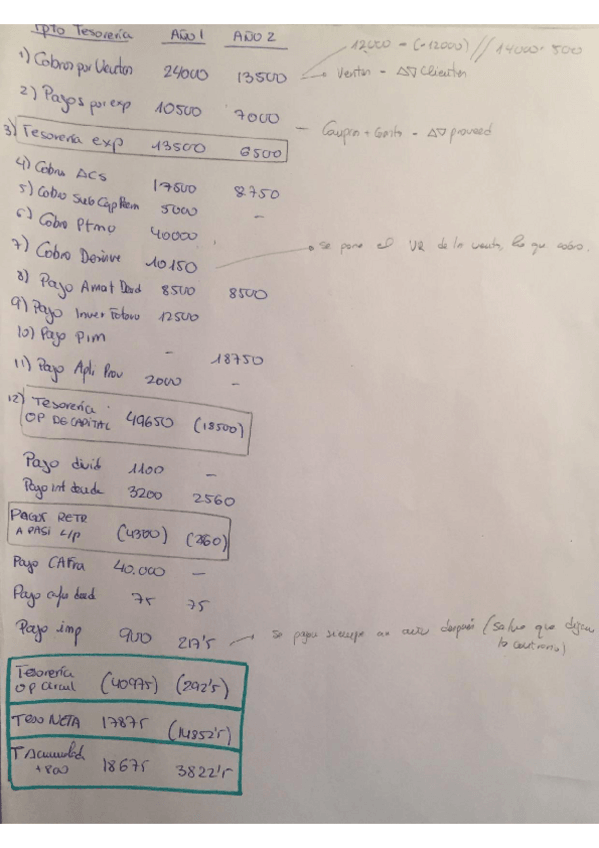 Ppto Tesorería Año 1 Año 2
12000 - (-12000) // 14000 - 500
1) Cobros por Ventas 24000 13500
Ventas - Δ∇ Clientes
2) Pagos por exp 10500 7000
Compras + Gasto - Δ∇ proveed
3) Tesorería exp 13500 6500
4) Cobro ACS 17500 8750
5) Cobro Sub Cap Rem 5000 -
6) Cobro Ptmo 40000
7) Cobro Desinve 10150
se pone el VR de la venta, lo que cobro.
8) Pago Amat Deud 8500 8500
9) Pago Inver 12500
10) Pago PIM - 18750
11) Pago Apli Prov 2000 -
12) Tesorería OP DE CAPITAL 49650 (18500)
Pago divid 1100 -
Pago int deuda 3200 2560
PAGOS RETR A PASI L/P (4300) (2560)
Pago 40.000 -
Pago deud 75 75
Pago imp 900 217'5
Se pagan siempre año después (salvo que digan lo contrario)
Tesorería OP Circul (40975) (292'5)
TESO NETA 17875 (14852'5)
T Acumulada +800 18675 3822'5